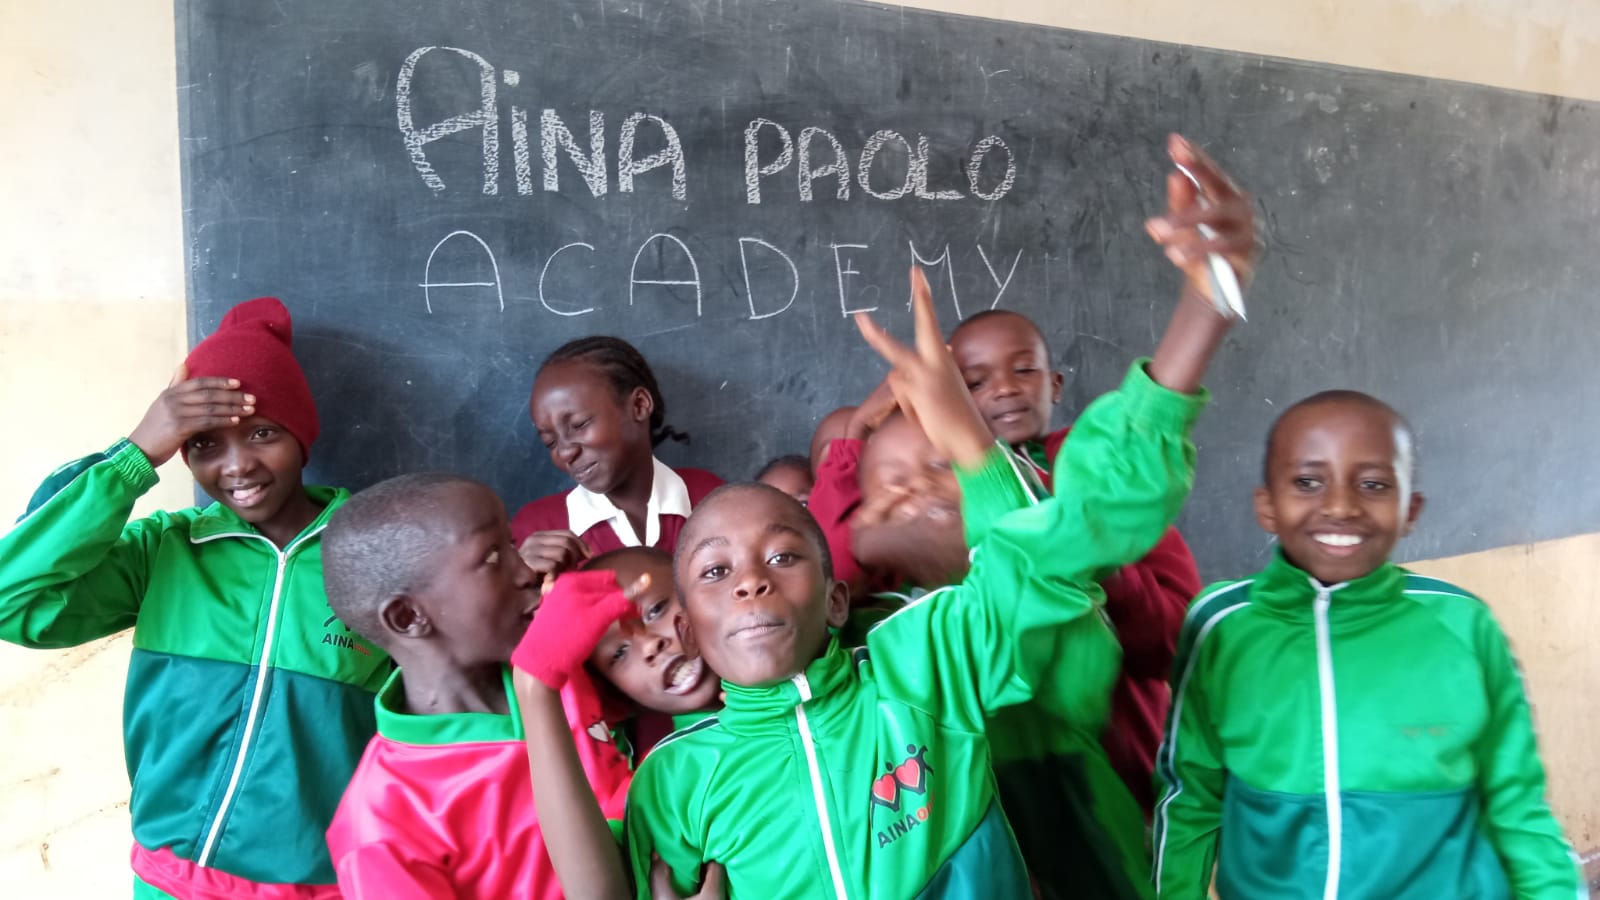 AiNA PAOLO
ACADEMY
AINA
AINA